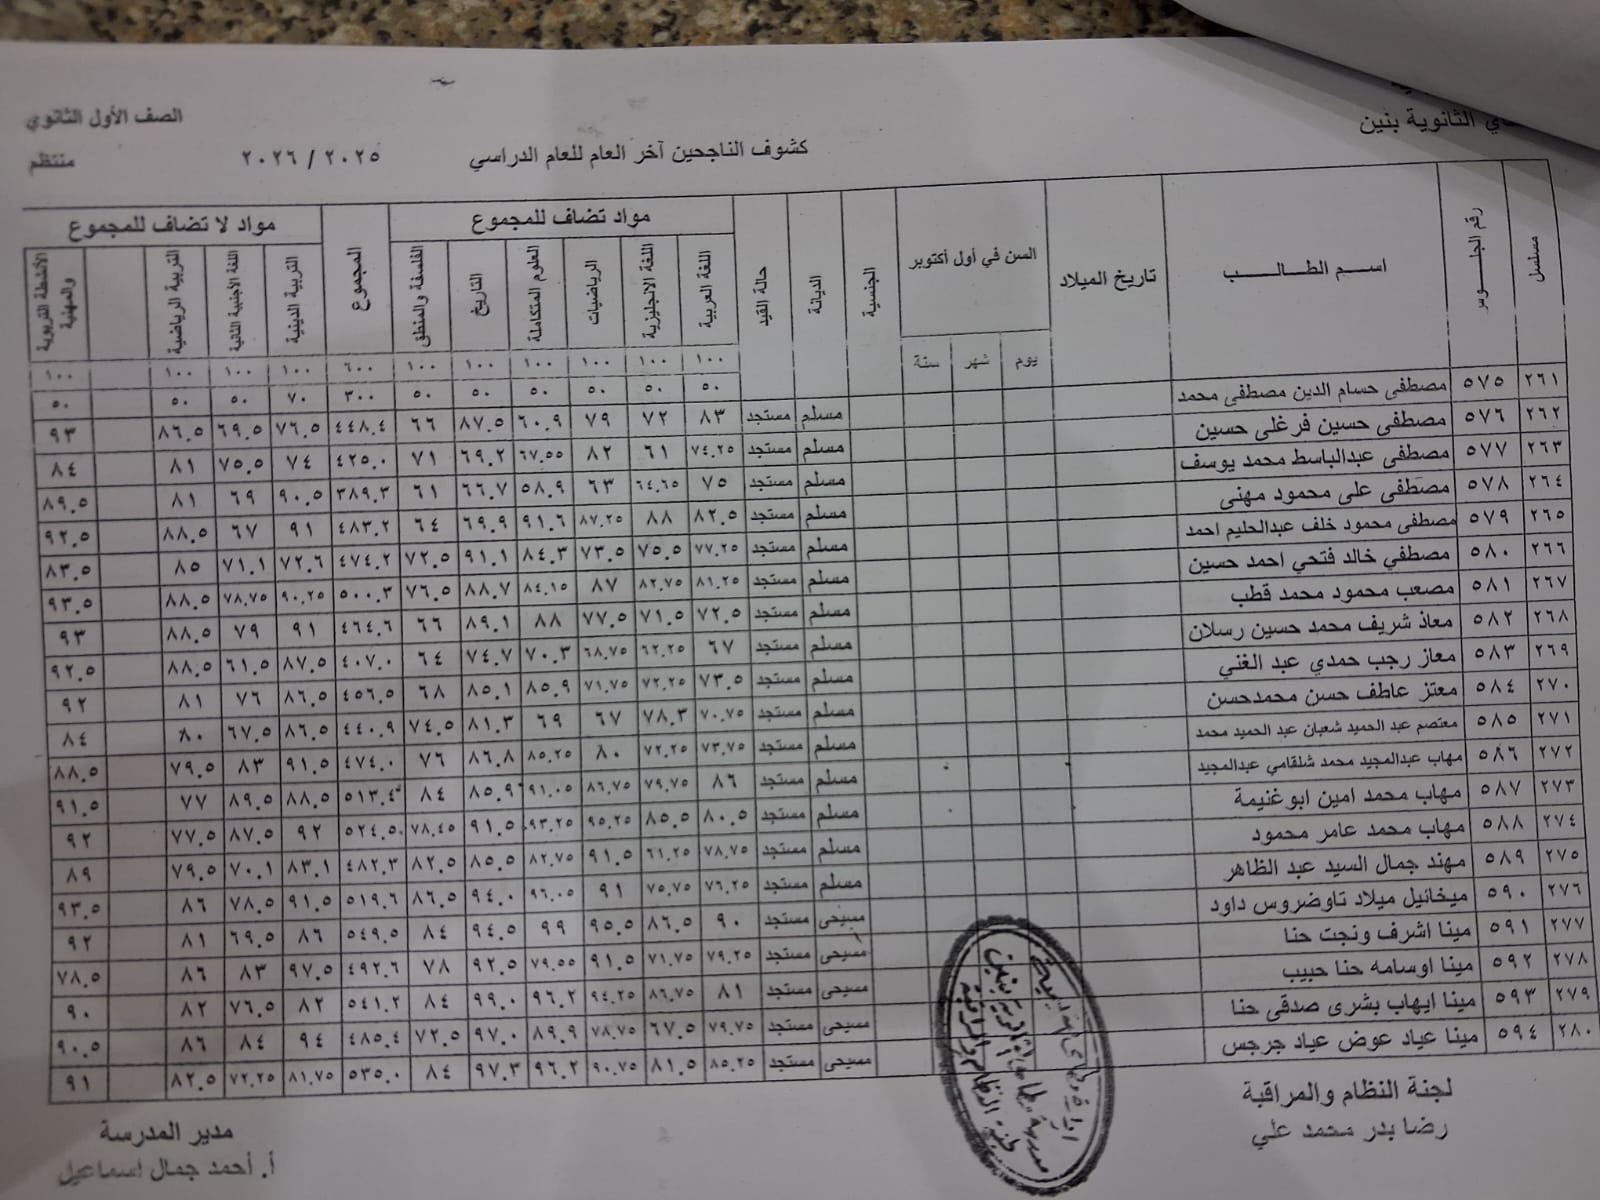 الثانوية بنين
كشوف الناجحين آخر العام للعام الدراسي ٢٠٢٥ / ٢٠٢٦
الصف الأول الثانوي
منتظم
مسلسل | رقم الجلـــوس | اســـم الطـــالـــــب | تاريخ الميلاد | السن في أول أكتوبر | الجنسية | الديانة | حالة القيد | مواد تضاف للمجموع | المجموع | مواد لا تضاف للمجموع
يوم | شهر | سنة | اللغة العربية | اللغة الانجليزية | الرياضيات | العلوم المتكاملة | التاريخ | الفلسفة والمنطق | التربية الدينية | اللغة الأجنبية الثانية | التربية الرياضية | الأنشطة التربوية والمهنية
١٠٠ | ١٠٠ | ١٠٠ | ١٠٠ | ١٠٠ | ١٠٠ | ٦٠٠ | ١٠٠ | ١٠٠ | ١٠٠ | ١٠٠
٥٠ | ٥٠ | ٥٠ | ٥٠ | ٥٠ | ٥٠ | ٣٠٠ | ٧٠ | ٥٠ | ٥٠ | ٥٠
٢٦١ | ٥٧٥ | مصطفى حسام الدين مصطفى محمد | مسلم | مستجد | ٨٣ | ٧٢ | ٧٩ | ٦٠.٩ | ٨٧.٥ | ٦٦ | ٤٤٨.٤ | ٧٦.٥ | ٦٩.٥ | ٨٦.٥ | ٩٣
٢٦٢ | ٥٧٦ | مصطفى حسين فرغلى حسين | مسلم | مستجد | ٧٤.٢٥ | ٦١ | ٨٢ | ٦٧.٥٥ | ٦٩.٢ | ٧١ | ٤٢٥.٠ | ٧٤ | ٧٥.٥ | ٨١ | ٨٤
٢٦٣ | ٥٧٧ | مصطفى عبدالباسط محمد يوسف | مسلم | مستجد | ٧٥ | ٦٤.٦٥ | ٦٣ | ٥٨.٩ | ٦٦.٧ | ٦١ | ٣٨٩.٣ | ٩٠.٥ | ٦٩ | ٨١ | ٨٩.٥
٢٦٤ | ٥٧٨ | مصطفى على محمود مهنى | مسلم | مستجد | ٨٢.٥ | ٨٨ | ٨٧.٢٥ | ٩١.٦ | ٦٩.٩ | ٦٤ | ٤٨٣.٢ | ٩١ | ٦٧ | ٨٨.٥ | ٩٢.٥
٢٦٥ | ٥٧٩ | مصطفى محمود خلف عبدالحليم احمد | مسلم | مستجد | ٧٧.٢٥ | ٧٥.٥ | ٧٣.٥ | ٨٤.٣ | ٩١.١ | ٧٢.٥ | ٤٧٤.٢ | ٧٢.٦ | ٧١.١ | ٨٥ | ٨٣.٥
٢٦٦ | ٥٨٠ | مصطفي خالد فتحي احمد حسين | مسلم | مستجد | ٨١.٢٥ | ٨٢.٧٥ | ٨٧ | ٨٤.١٥ | ٨٨.٧ | ٧٦.٥ | ٥٠٠.٣ | ٩٠.٢٥ | ٧٨.٧٥ | ٨٨.٥ | ٩٣.٥
٢٦٧ | ٥٨١ | مصعب محمود محمد قطب | مسلم | مستجد | ٧٢.٥ | ٧١.٥ | ٧٧.٥ | ٨٨ | ٨٩.١ | ٦٦ | ٤٦٤.٦ | ٩١ | ٧٩ | ٨٨.٥ | ٩٣
٢٦٨ | ٥٨٢ | معاذ شريف محمد حسين رسلان | مسلم | مستجد | ٦٧ | ٦٢.٢٥ | ٦٨.٧٥ | ٧٠.٣ | ٧٤.٧ | ٦٤ | ٤٠٧.٠ | ٨٧.٥ | ٦١.٥ | ٨٨.٥ | ٩٢.٥
٢٦٩ | ٥٨٣ | معاز رجب حمدي عبد الغني | مسلم | مستجد | ٧٣.٥ | ٧٢.٢٥ | ٧١.٧٥ | ٨٥.٩ | ٨٥.١ | ٦٨ | ٤٥٦.٥ | ٨٦.٥ | ٧٦ | ٨١ | ٩٢
٢٧٠ | ٥٨٤ | معتز عاطف حسن محمدحسن | مسلم | مستجد | ٧٠.٧٥ | ٧٨.٣ | ٦٧ | ٦٩ | ٨١.٣ | ٧٤.٥ | ٤٤٠.٩ | ٨٦.٥ | ٦٧.٥ | ٨٠ | ٨٤
٢٧١ | ٥٨٥ | معتصم عبد الحميد شعبان عبد الحميد محمد | مسلم | مستجد | ٧٣.٧٥ | ٧٢.٢٥ | ٨٠ | ٨٥.٢٥ | ٨٦.٨ | ٧٦ | ٤٧٤.٠ | ٩١.٥ | ٨٣ | ٧٩.٥ | ٨٨.٥
٢٧٢ | ٥٨٦ | مهاب عبدالمجيد محمد شلقامي عبدالمجيد | مسلم | مستجد | ٨٦ | ٧٩.٧٥ | ٨٦.٧٥ | ٩١.٠٥ | ٨٥.٩ | ٨٤ | ٥١٣.٤ | ٨٨.٥ | ٨٩.٥ | ٧٧ | ٩١.٥
٢٧٣ | ٥٨٧ | مهاب محمد امين ابوغنيمة | مسلم | مستجد | ٨٠.٥ | ٨٥.٥ | ٩٥.٢٥ | ٩٣.٢٥ | ٩١.٥ | ٧٨.٤٥ | ٥٢٤.٥ | ٩٢ | ٨٧.٥ | ٧٧.٥ | ٩٢
٢٧٤ | ٥٨٨ | مهاب محمد عامر محمود | مسلم | مستجد | ٧٨.٧٥ | ٦١.٢٥ | ٩١.٥ | ٨٢.٧٥ | ٨٥.٥ | ٨٢.٥ | ٤٨٢.٣ | ٨٣.١ | ٧٠.١ | ٧٩.٥ | ٨٩
٢٧٥ | ٥٨٩ | مهند جمال السيد عبد الظاهر | مسلم | مستجد | ٧٦.٢٥ | ٧٥.٧٥ | ٩١ | ٩٦.٠٥ | ٩٤.٠ | ٨٦.٥ | ٥١٩.٦ | ٩١.٥ | ٧٨.٥ | ٨٦ | ٩٣.٥
٢٧٦ | ٥٩٠ | ميخائيل ميلاد تاوضروس داود | مسيحى | مستجد | ٩٠ | ٨٦.٥ | ٩٥.٥ | ٩٩ | ٩٤.٥ | ٨٤ | ٥٤٩.٥ | ٨٦ | ٦٩.٥ | ٨١ | ٩٢
٢٧٧ | ٥٩١ | مينا اشرف ونجت حنا | مسيحى | مستجد | ٧٩.٢٥ | ٧١.٧٥ | ٩١.٥ | ٧٩.٥٥ | ٩٢.٥ | ٧٨ | ٤٩٢.٦ | ٩٧.٥ | ٨٣ | ٨٦ | ٧٨.٥
٢٧٨ | ٥٩٢ | مينا اوسامه حنا حبيب | مسيحى | مستجد | ٨١ | ٨٦.٧٥ | ٩٤.٢٥ | ٩٦.٢ | ٩٩.٠ | ٨٤ | ٥٤١.٢ | ٨٢ | ٧٦.٥ | ٨٢ | ٩٠
٢٧٩ | ٥٩٣ | مينا ايهاب بشرى صدقى حنا | مسيحى | مستجد | ٧٩.٧٥ | ٦٧.٥ | ٧٨.٧٥ | ٨٩.٩ | ٩٧.٠ | ٧٢.٥ | ٤٨٥.٤ | ٩٤ | ٨٤ | ٨٦ | ٩٠.٥
٢٨٠ | ٥٩٤ | مينا عياد عوض عياد جرجس | مسيحى | مستجد | ٨٥.٢٥ | ٨١.٥ | ٩٠.٧٥ | ٩٦.٢ | ٩٧.٣ | ٨٤ | ٥٣٥.٠ | ٨١.٧٥ | ٧٢.٢٥ | ٨٢.٥ | ٩١
لجنة النظام والمراقبة
رضا بدر محمد علي
مدير المدرسة
أ. أحمد جمال اسماعيل